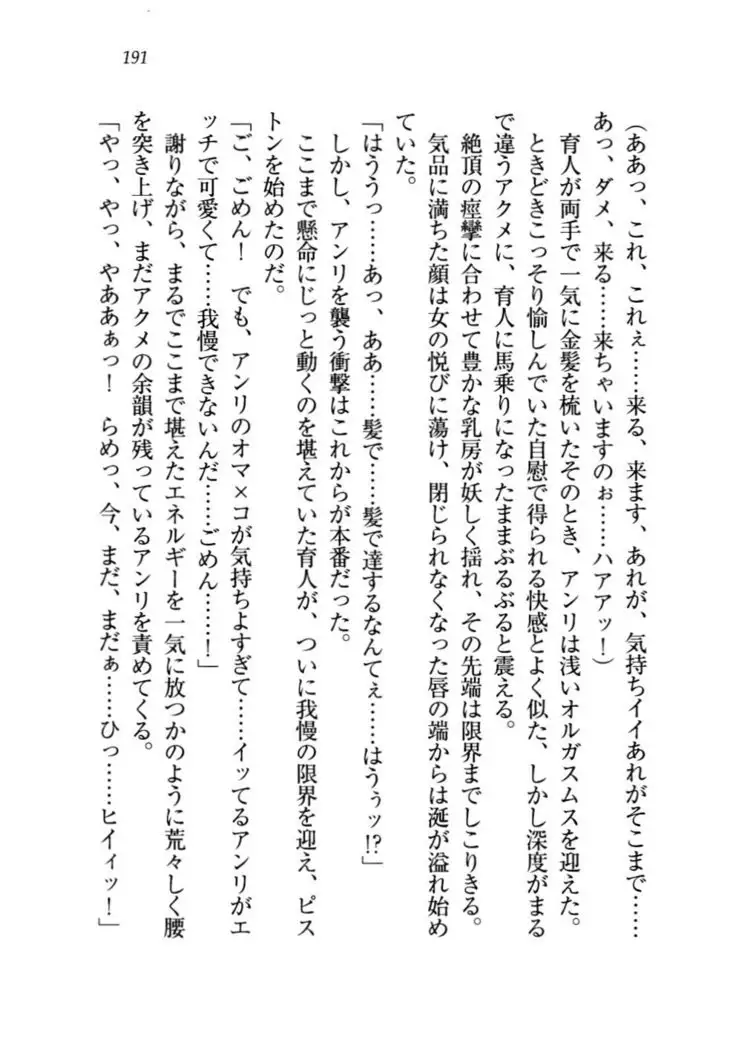 191
（ああっ、これ、これぇ……来る、来ます、あれが、気持ちイイあれがそこまで……
あっ、ダメ、来る……来ちゃいますのぉ……ハアアッ！）
育人が両手で一気に金髪を梳いたそのとき、アンリは浅いオルガスムスを迎えた。
ときどきこっそり愉しんでいた自慰で得られる快感とよく似た、しかし深度がまる
で違うアクメに、育人に馬乗りになったままぶるぶると震える。
絶頂の痙攣に合わせて豊かな乳房が妖しく揺れ、その先端は限界までしこりきる。
気品に満ちた顔は女の悦びに蕩け、閉じられなくなった唇の端からは涎が溢れ始め
ていた。
「はううっ……あっ、ああ……髪で……髪で達するなんてぇ……はうぅッ!?」
しかし、アンリを襲う衝撃はこれからが本番だった。
ここまで懸命にじっと動くのを堪えていた育人が、ついに我慢の限界を迎え、ピス
トンを始めたのだ。
「ご、ごめん！　でも、アンリのオマ×コが気持ちよすぎて……イッてるアンリがエ
ッチで可愛くて……我慢できないんだ……ごめん……！」
謝りながら、まるでここまで堪えたエネルギーを一気に放つかのように荒々しく腰
を突き上げ、まだアクメの余韻が残っているアンリを責めてくる。
「やっ、やっ、やああぁっ！　らめっ、今、まだ、まだぁ……ひっ……ヒイィッ！」